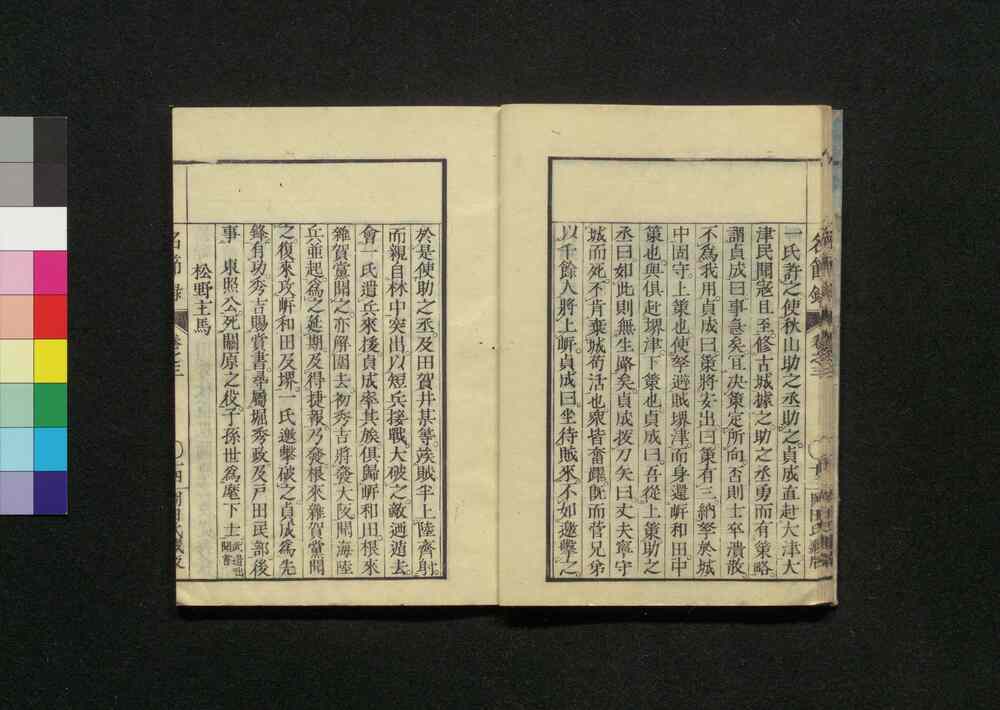 一氏許之使秋山助之丞助之貞成直赴大津大
津民聞寇且至修古城據之助之丞勇而有策略
謂貞成曰事急矣宜决策定所向否則士卒潰散
不爲我用貞成曰策將安出曰策有三納孥於城
中固守上策也使孥避賊堺津而身還岍和田中
策也與俱赴堺津下策也貞成曰吾從上策助之
丞曰如此則無生路矣貞成拔刀矢曰丈夫寧守
城而死不肯棄城苟活也衆皆奮躍旣而菅兄弟
以千餘人將上岍貞成曰坐待賊來不如邀擊之
於是使助之丞及田賀井甚等羙賊半上陸齊射
而親自林中突出以短兵接戰大破之敵遁逃去
會一氏遣兵來後貞成率其族俱歸岍和田根來
雜賀黨聞之亦解圍去初秀吉將發大阪聞海陸
兵並起爲之延期及得捷報乃發根來雜賀黨聞
之復來攻岍和田及堺一氏邀擊破之貞成爲先
鋒有功秀吉賜賞書尋屬堀秀政及戸田民部後
事 東照公死關原之役子孫世爲麾下士
松野主馬
名節録 卷之三